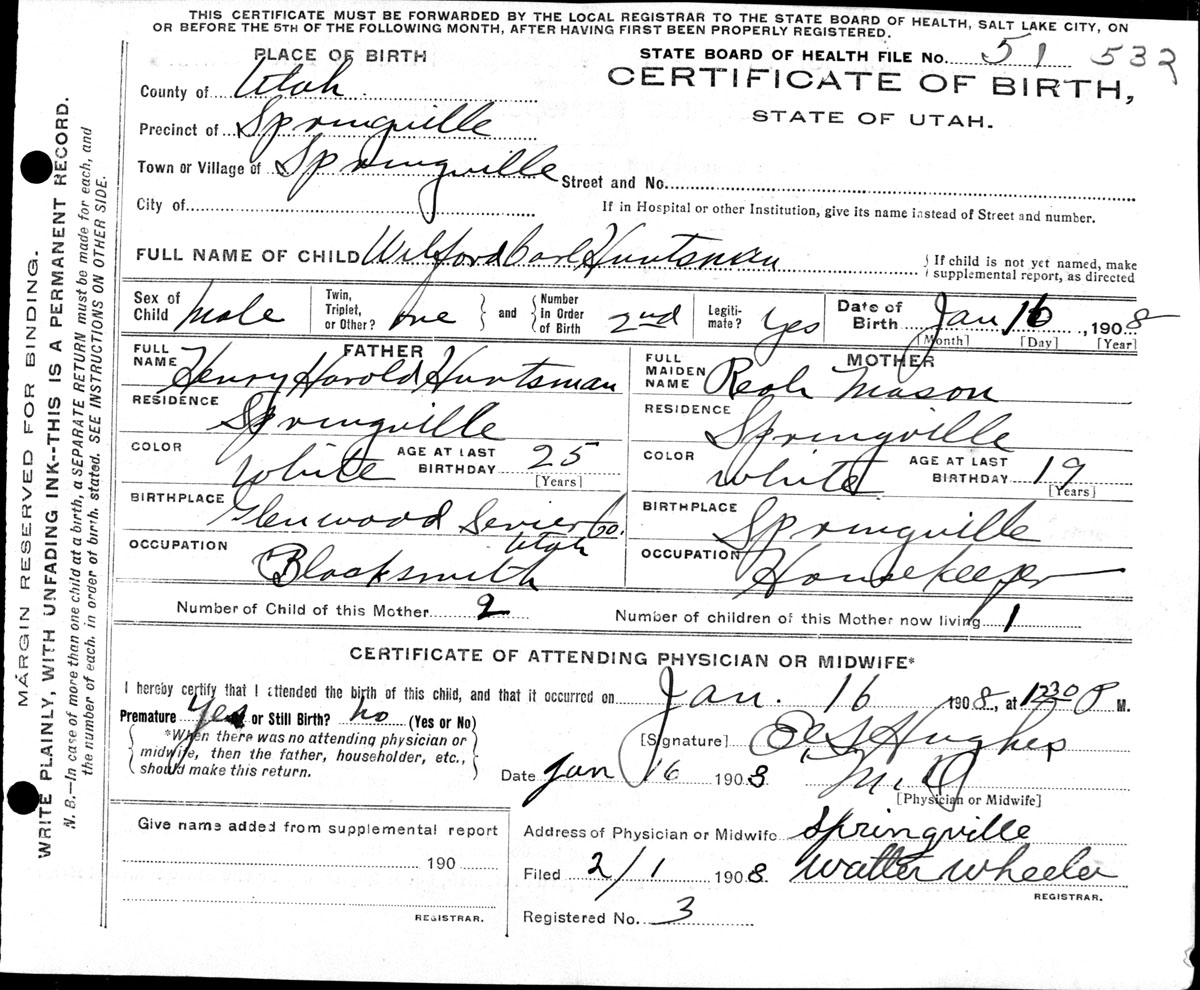 THIS CERTIFICATE MUST BE FORWARDED BY THE LOCAL REGISTRAR TO THE STATE BOARD OF HEALTH, SALT LAKE CITY, ON
OR BEFORE THE 5TH OF THE FOLLOWING MONTH, AFTER HAVING FIRST BEEN PROPERLY REGISTERED.
PLACE OF BIRTH
STATE BOARD OF HEALTH FILE No. 51 532
County of Utah
CERTIFICATE OF BIRTH,
STATE OF UTAH.
Precinct of Springville
Town or Village of Springville
Street and No.
City of
If in Hospital or other Institution, give its name instead of Street and number.
FULL NAME OF CHILD Wilford Carl Huntsman
{ If child is not yet named, make
supplemental report, as directed
Sex of Child Male
Twin, Triplet, or Other? one
and
Number in Order of Birth 2nd
Legitimate? Yes
Date of Birth Jan 16, 1908
[Month] [Day] [Year]
FATHER
FULL NAME Henry Harold Huntsman
RESIDENCE Springville
COLOR White
AGE AT LAST BIRTHDAY 25
[Years]
BIRTHPLACE Glenwood Sevier Co.
Utah
OCCUPATION Blacksmith
MOTHER
FULL MAIDEN NAME Reah Mason
RESIDENCE Springville
COLOR White
AGE AT LAST BIRTHDAY 19
[Years]
BIRTHPLACE Springville
OCCUPATION Housekeeper
Number of Child of this Mother 2
Number of children of this Mother now living 1
CERTIFICATE OF ATTENDING PHYSICIAN OR MIDWIFE*
I hereby certify that I attended the birth of this child, and that it occurred on Jan. 16 1908, at 1230 P M.
Premature Yes or Still Birth? no (Yes or No)
*When there was no attending physician or
midwife, then the father, householder, etc.,
should make this return.
[Signature] Hughes
Date Jan 16 1908 M.D.
[Physician or Midwife]
Give name added from supplemental report
190
REGISTRAR.
Address of Physician or Midwife Springville
Filed 2/1 1908 Walter Wheeler
REGISTRAR.
Registered No. 3
MARGIN RESERVED FOR BINDING.
WRITE PLAINLY, WITH UNFADING INK--THIS IS A PERMANENT RECORD.
N. B.—In case of more than one child at a birth, a SEPARATE RETURN must be made for each, and
the number of each, in order of birth, stated. SEE INSTRUCTIONS ON OTHER SIDE.